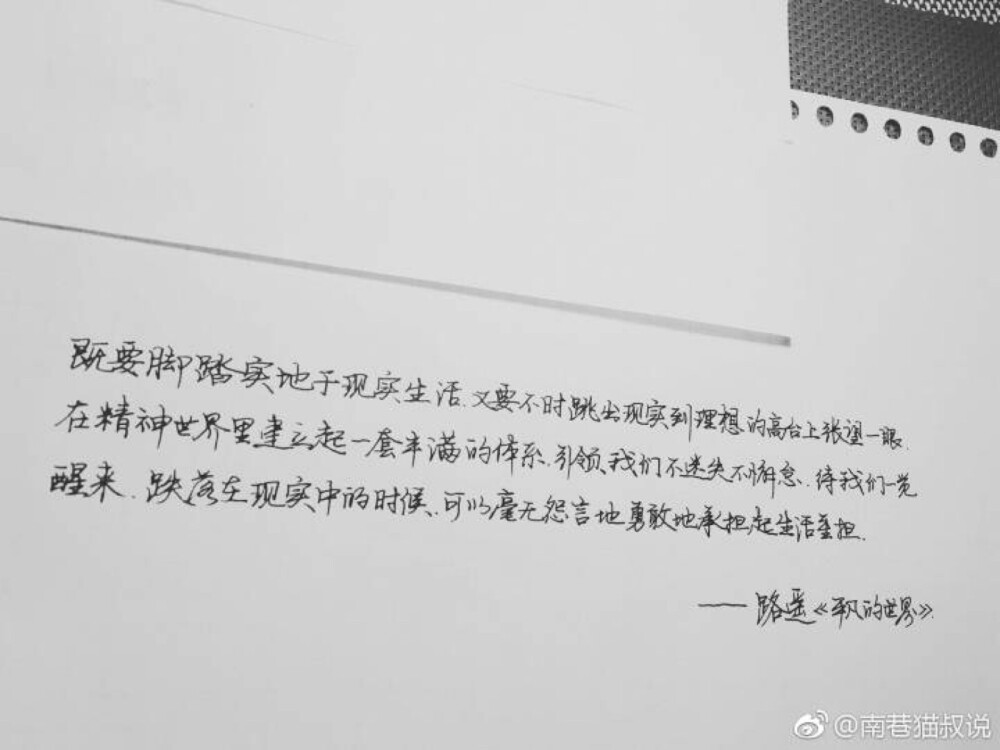 既要脚踏实地于现实生活.又要不时跳出现实到理想的高台上张望一眼.
在精神世界里建立起一套丰满的体系.引领我们不迷失不懈怠.待我们一觉
醒来.跌落在现实中的时候.可以毫无怨言地勇敢地承担起生活重担.
——路遥《平凡的世界》.
@南巷猫叔说